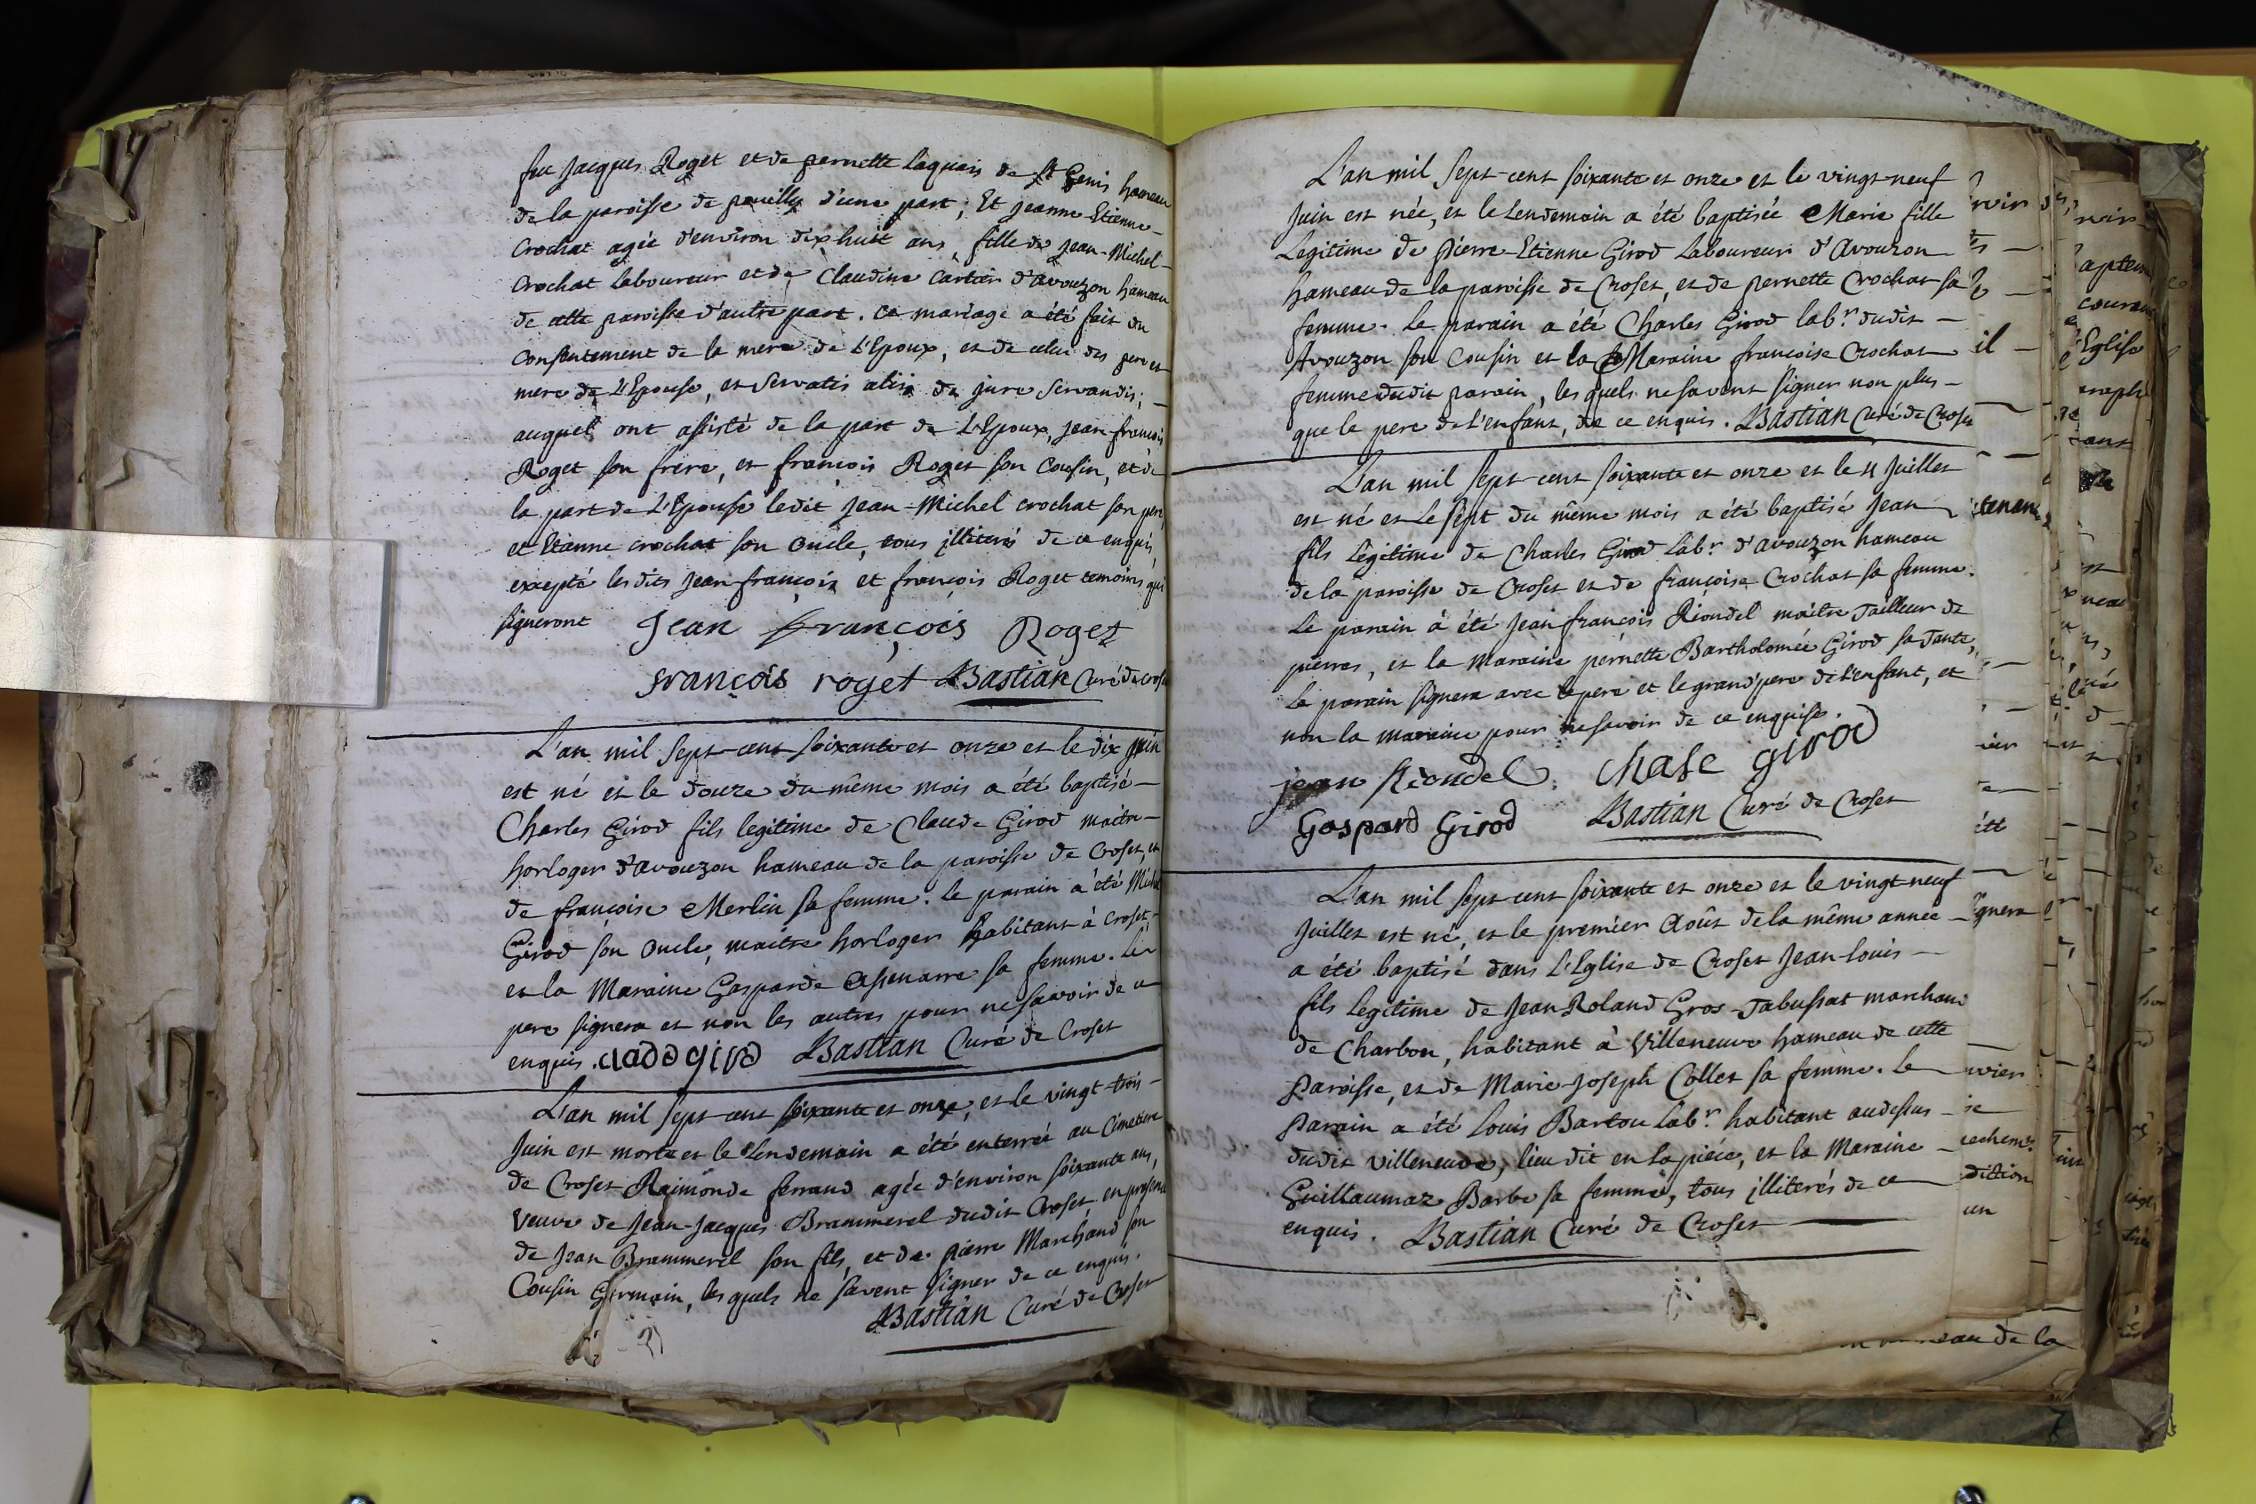 feu Jacques Roget et de pernette laquais de St Genis hameau
de la paroisse de pouilly d'une part; Et jeanne Etienne-
Crochat agée d'environ dix huit ans, fille de jean-Michel-
Crochat laboureur et de Claudine Cartier d'avouzon hameau
de cette paroisse d'autre part. ce mariage a été fait du
consentement de la mere de L'Epoux, et de celui des pere et
mere de L'Epouse, et servatis aliis de jure servandis; -
auquel ont assisté de la part de L'Epoux, jean-francois
Roget son frere, et francois Roget son cousin, et de
la part de L'Epouse ledit jean-Michel crochat son pere,
et Etienne crochat son oncle, tous illiterés de ce enquis,
excepté les dits jean-francois et francois Roget temoins qui
signeront Jean François Roget
françois roget Bastian Curé de croset
L'an mil sept-cent soixante et onze et le dix juin
est né et le douze du même mois a été baptisé-
Charles Girod fils legitime de Claude Girod maitre-
horloger d'avouzon hameau de la paroisse de Croset, et
de françoise Merlin sa femme. Le parain a été Michel
Girod son oncle, maitre horloger habitant à Croset-
et la Maraine Gasparde sa femme. Le
pere signera et non les autres pour ne savoir de ce
enquis. clado giro Bastian Curé de Croset
L'an mil sept-cent soixante et onze, et le vingt-trois-
Juin est morte et le lendemain a été enterrée au Cimetiere
de Croset Raimonde ferrand agée d'environ soixante ans,
veuve de Jean-Jacques Brammerel dudit Croset, en presence
de Jean Brammerel son fils, et de pierre Marchand son
Cousin Germain, les quels ne savent signer de ce enquis.
Bastian Curé de Croset
L'an mil sept-cent soixante et onze et le vingt-neuf
Juin est née, et le Lendemain a été baptisée Marie fille
Legitime de pierre-Etienne Girod Laboureur d'Avouzon
hameau de la paroisse de Croset, et de pernette Crochat sa
femme. Le parain a été Charles Girod labr. dudit -
Avouzon son Cousin et la Maraine francoise Crochat
femme dudit parain, les quels ne savent signer non plus -
que le pere de l'enfant, de ce enquis. Bastian Curé de Croset
L'an mil sept-cent soixante et onze et le 4 Juillet
est né et le sept du même mois a été baptisé Jean
fils Légitime de Charles Girod Labr. d'avouzon hameau
de la paroisse de Croset et de françoise Crochat sa femme.
Le parain à été Jean françois Riondel maitre Tailleur de
pierres, et la Maraine pernette Bartholomée Girod sa Tante,
Le parain signera avec le pere et le grand'pere de l'enfant, et
non la maraine pour ne savoir de ce enquise.
jean Riondel. chale girod
Gaspard Girod Bastian Curé de Croset
L'an mil sept-cent soixante et onze et le vingt-neuf
Juillet est né, et le premier Août de la même année -
a été baptisé dans L'Eglise de Croset Jean-Louis -
fils Legitime de Jean Roland Gros-Tabussat marchand
de Charbon, habitant à Villeneuve hameau de cette
Paroisse, et de Marie-Joseph Collet sa femme. Le
Parain a été Louis Bartou Labr. habitant audessus -
dudit Villeneuve, lieu dit en la piéce, et la Maraine -
Guillaumaz Barbe sa femme, tous illiterés de ce
enquis. Bastian Curé de Croset